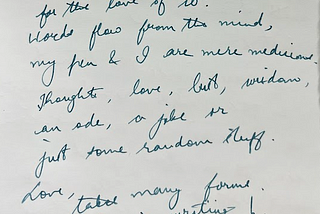 for the love of it.
Words flow from the mind,
my pen & I are mere mediums.
Thoughts, love, lust, wisdom,
an ode, a joke or
just some random stuff.
Love,
takes many forms.
writing !